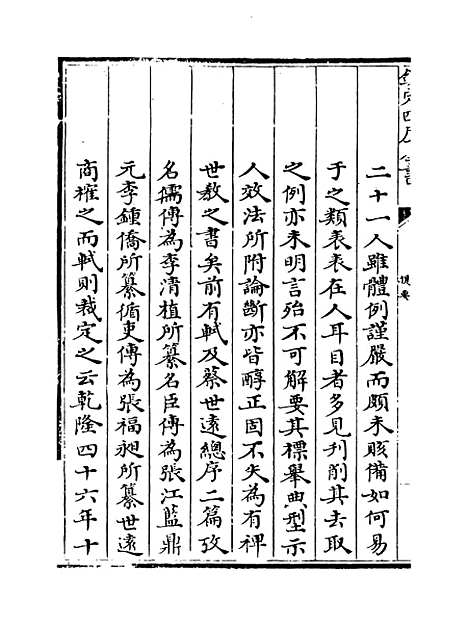 欽定四庫全書
提要
二十一人雖體例謹嚴而頗未賅備如何易
于之類表表在人耳目者多見刋削其去取
之例亦未明言殆不可解要其標舉典型示
人效法所附論斷亦皆醇正固不失為有裨
世教之書矣前有軾及蔡世遠總序二篇攷
名儒傳為李清植所纂名臣傳為張江藍鼎
元李鍾僑所纂循吏傳為張福昶所纂世遠
商榷之而軾則裁定之云乾隆四十六年十